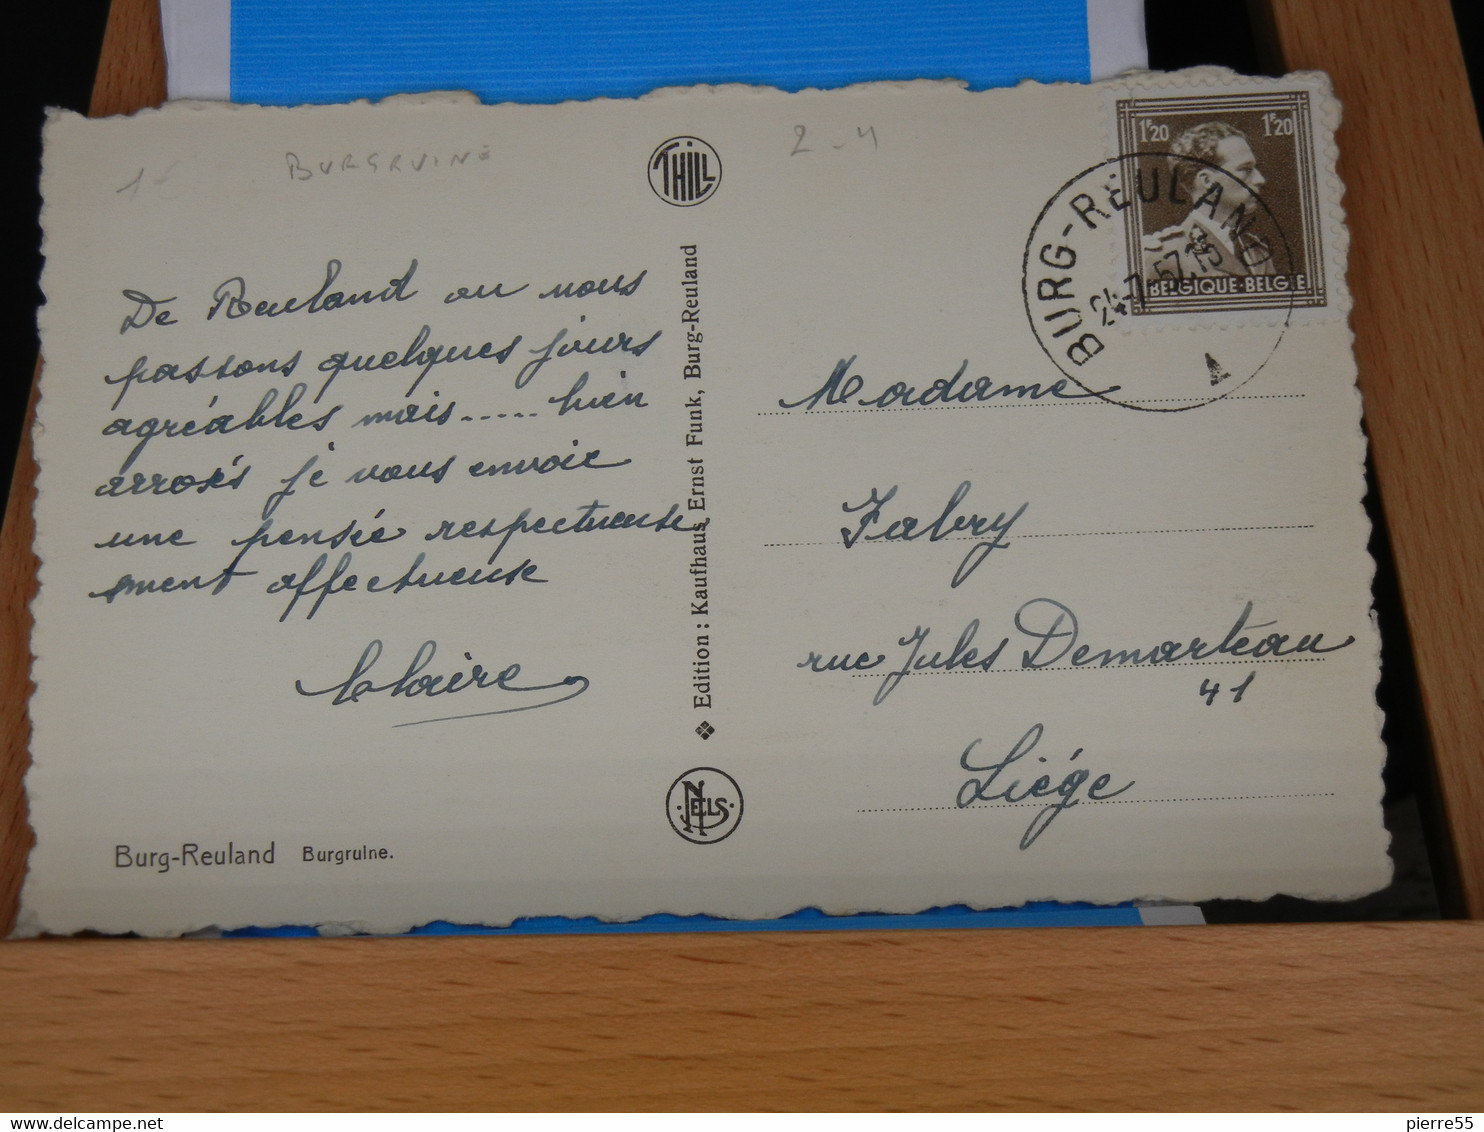 1-
BURGRUINE
2-4
THILL
De Reuland ou nous
passons quelques jours
agréables mais..... bien
arrosés je vous envoie
une pensée respectueuse
sment affectueuse
Claire
Burg-Reuland Burgruine.
Edition: Kaufhaus Ernst Funk, Burg-Reuland
NELS
1F20 1F20
BELGIQUE·BELGIE
BURG-REULAND
24-7-57
A
Madame
Fabry
rue Jules Demarteau
41
Liége
pierre55